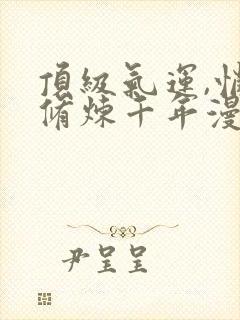 頂級氣運,悄
脩煉千年漫
尹呈呈